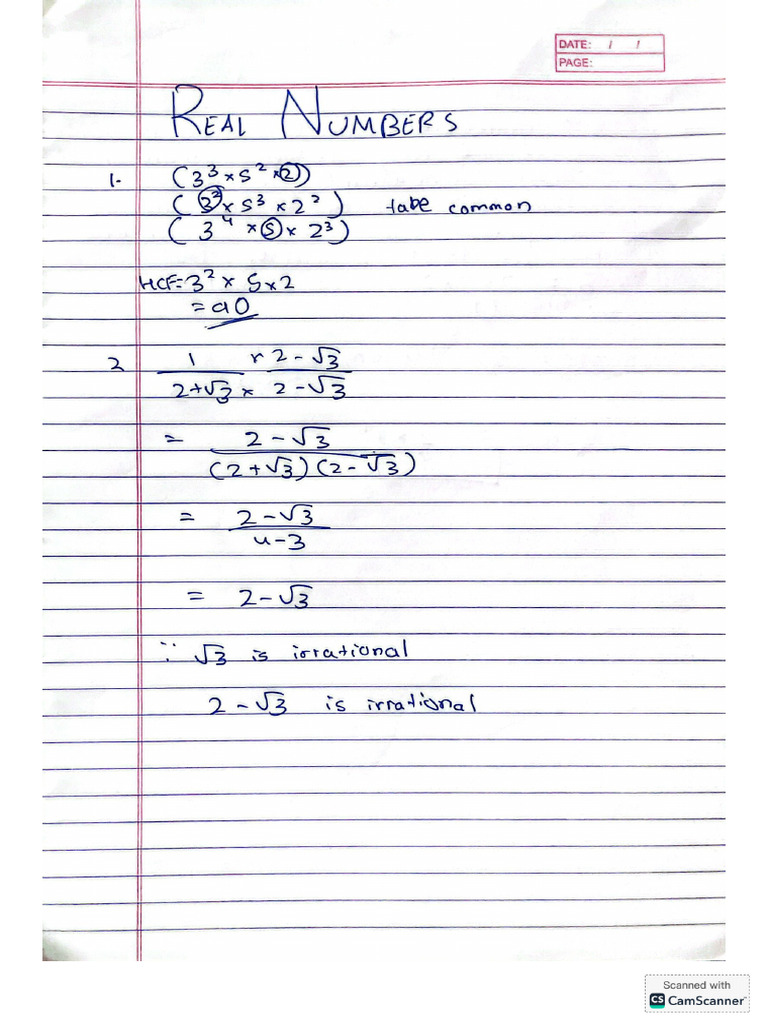 DATE: / /
PAGE:
REAL NUMBERS
1. (3³ × 5² × 2)
(3² × 5³ × 2²) take common
(3⁴ × 5 × 2³)
HCF = 3² × 5 × 2
= 90
2 1 × 2 - √3
2+√3 × 2 - √3
= 2 - √3
(2 + √3) (2 - √3)
= 2 - √3
4 - 3
= 2 - √3
∵ √3 is irrational
2 - √3 is irrational
Scanned with
CS CamScanner